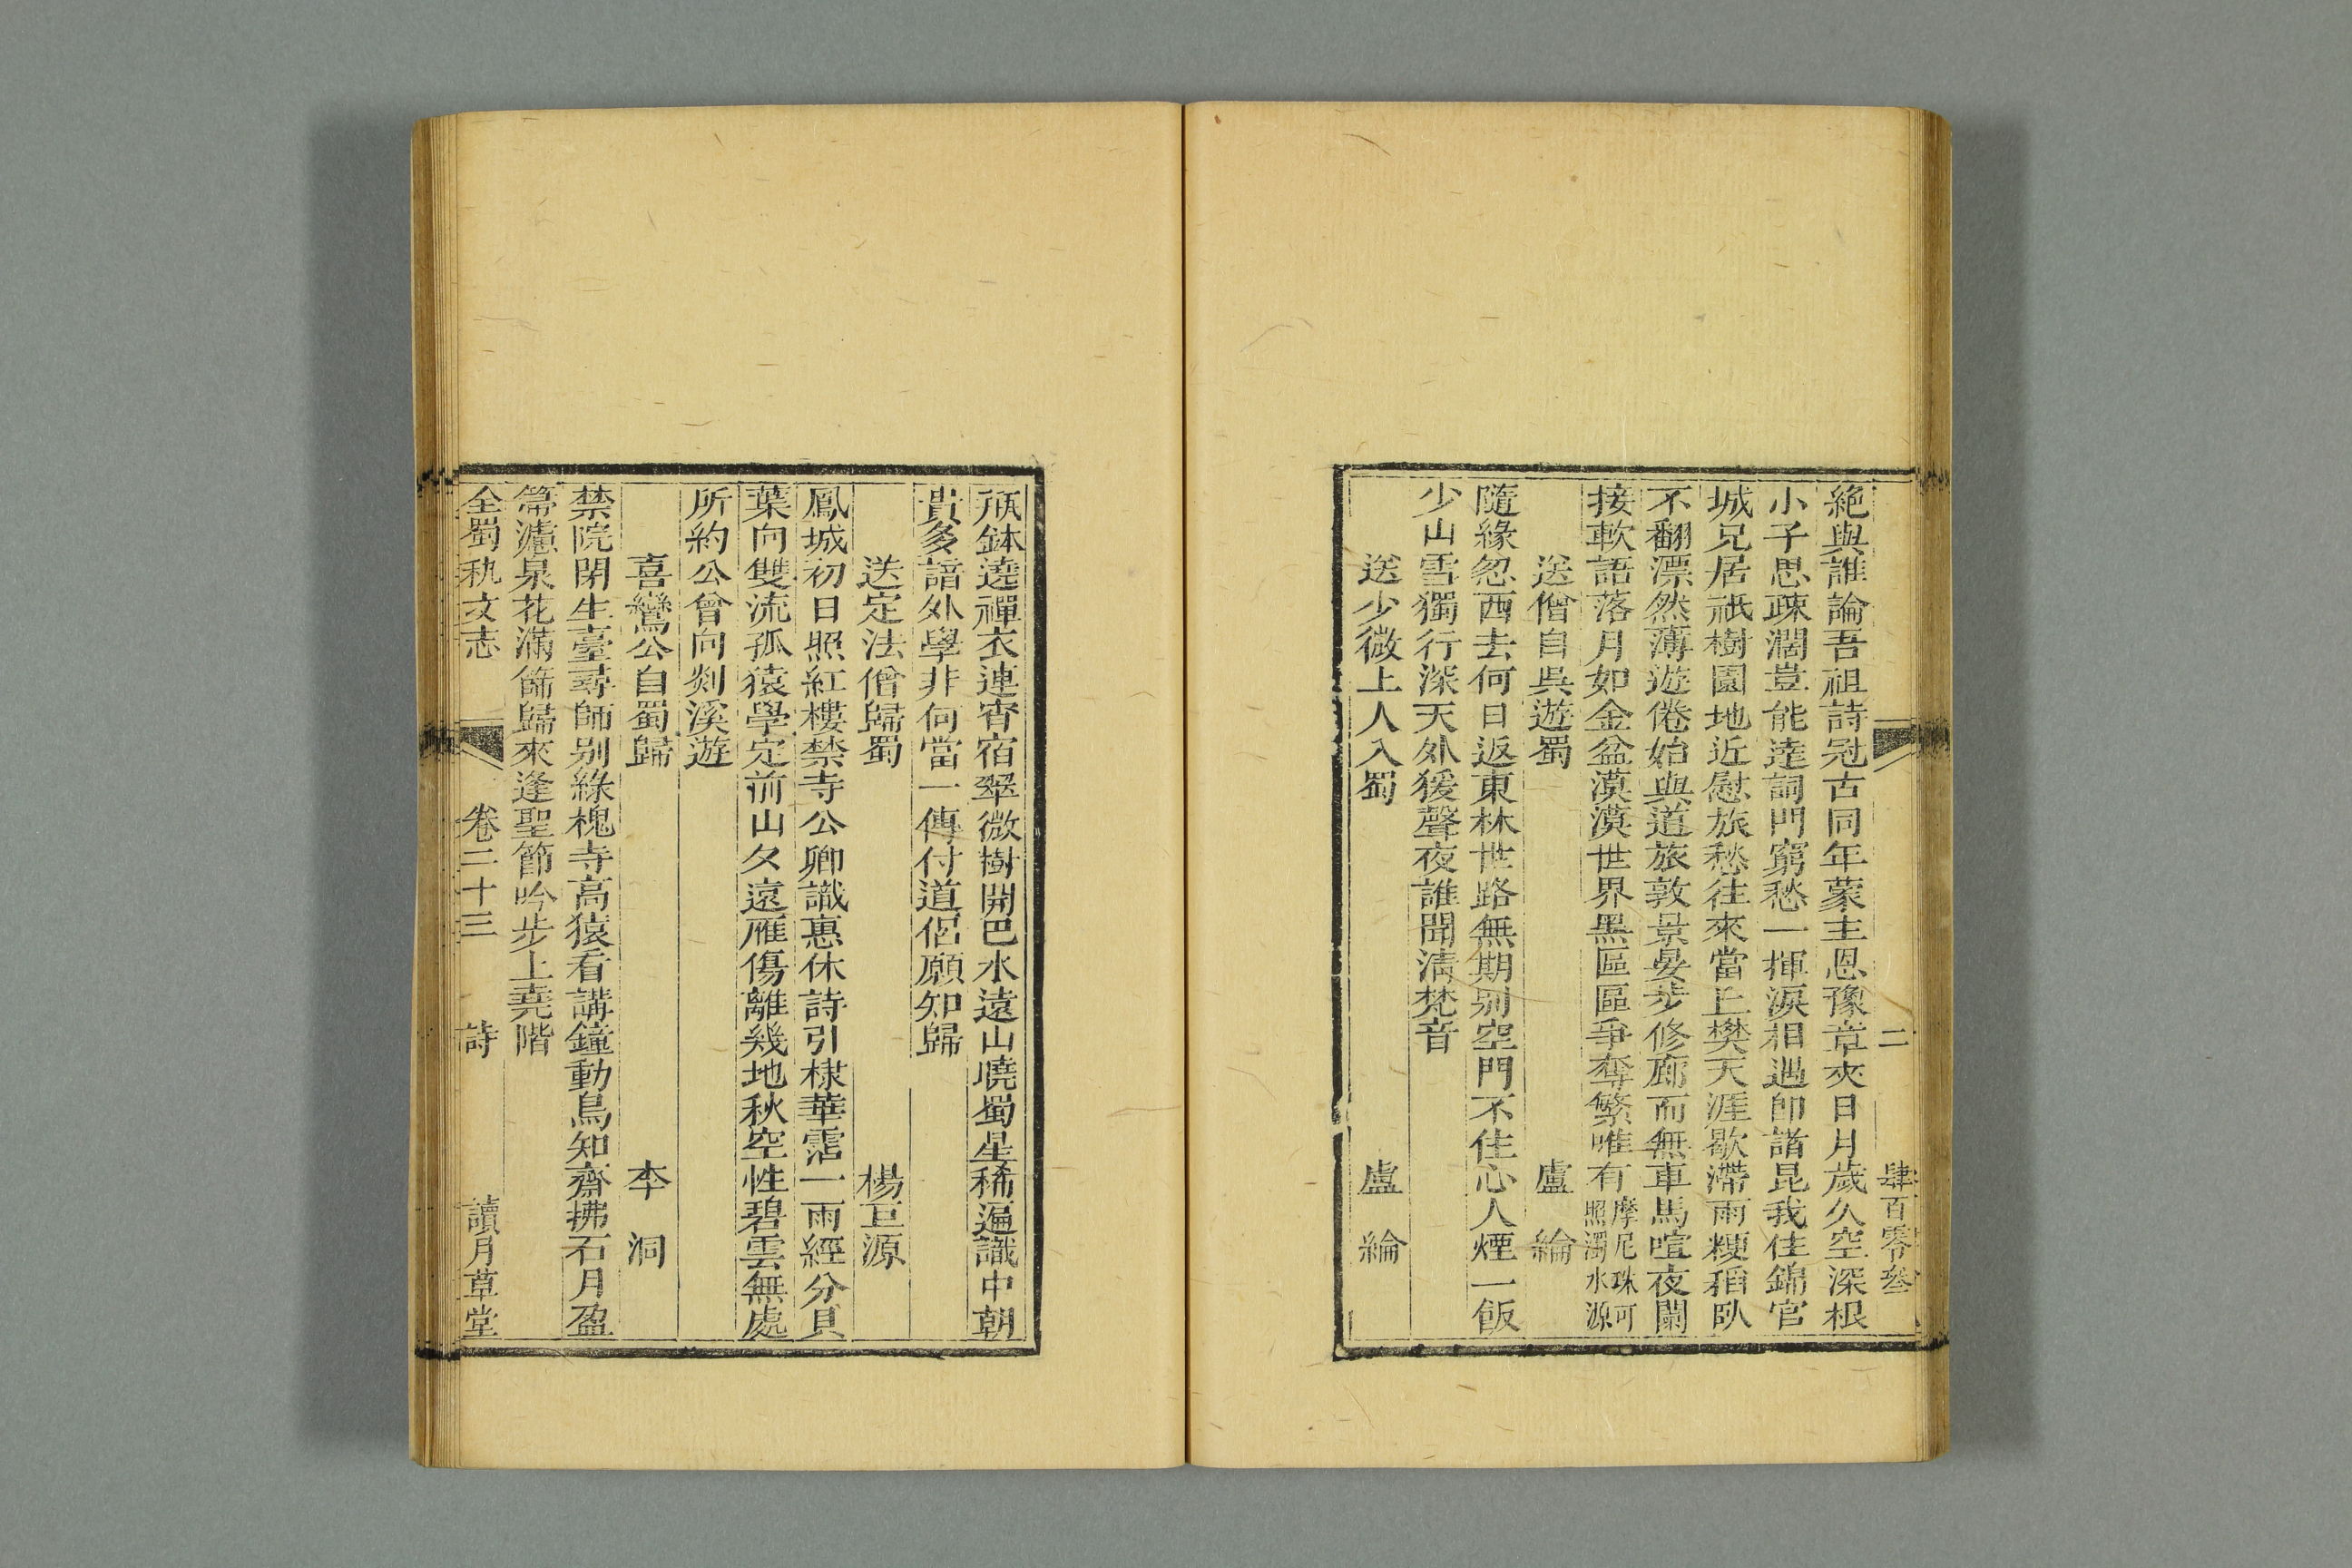 二 肆百零叄
絶與誰論吾祖詩冠古同年蒙主恩豫章夾日月歲久空深根
小子思疎濶豈能達詞門窮愁一揮淚相遇卽諸昆我住錦官
城兄居祇樹園地近慰旅愁往來當上樊天涯歇滯雨粳稻臥
不翻漂然薄遊倦始與道旅敦景晏步修廊而無車馬喧夜闌
接軟語落月如金盆漠漠世界黑區區爭奪繁唯有摩尼珠可照濁水源
送僧自吳遊蜀 盧綸
隨緣忽西去何日返東林世路無期别空門不住心人煙一飯
少山雪獨行深天外猨聲夜誰聞清梵音
送少微上人入蜀 盧綸
瓶鉢遶禪衣連宵宿翠微樹開巴水遠山曉蜀星稀遍識中朝
貴多諳外學非何當一傳付道侶願知歸
送定法僧歸蜀 楊巨源
鳳城初日照紅樓禁寺公卿識惠休詩引棣華霑一雨經分貝
葉向雙流孤猿學定前山夕遠雁傷離幾地秋空性碧雲無處
所約公曾向剡溪遊
喜鸞公自蜀歸 李洞
禁院閉生臺尋師别綠槐寺高猿看講鐘動鳥知齋拂石月盈
箒濾泉花滿篩歸來逢聖節吟步上堯階
全蜀秇文志 卷二十三 詩 讀月草堂